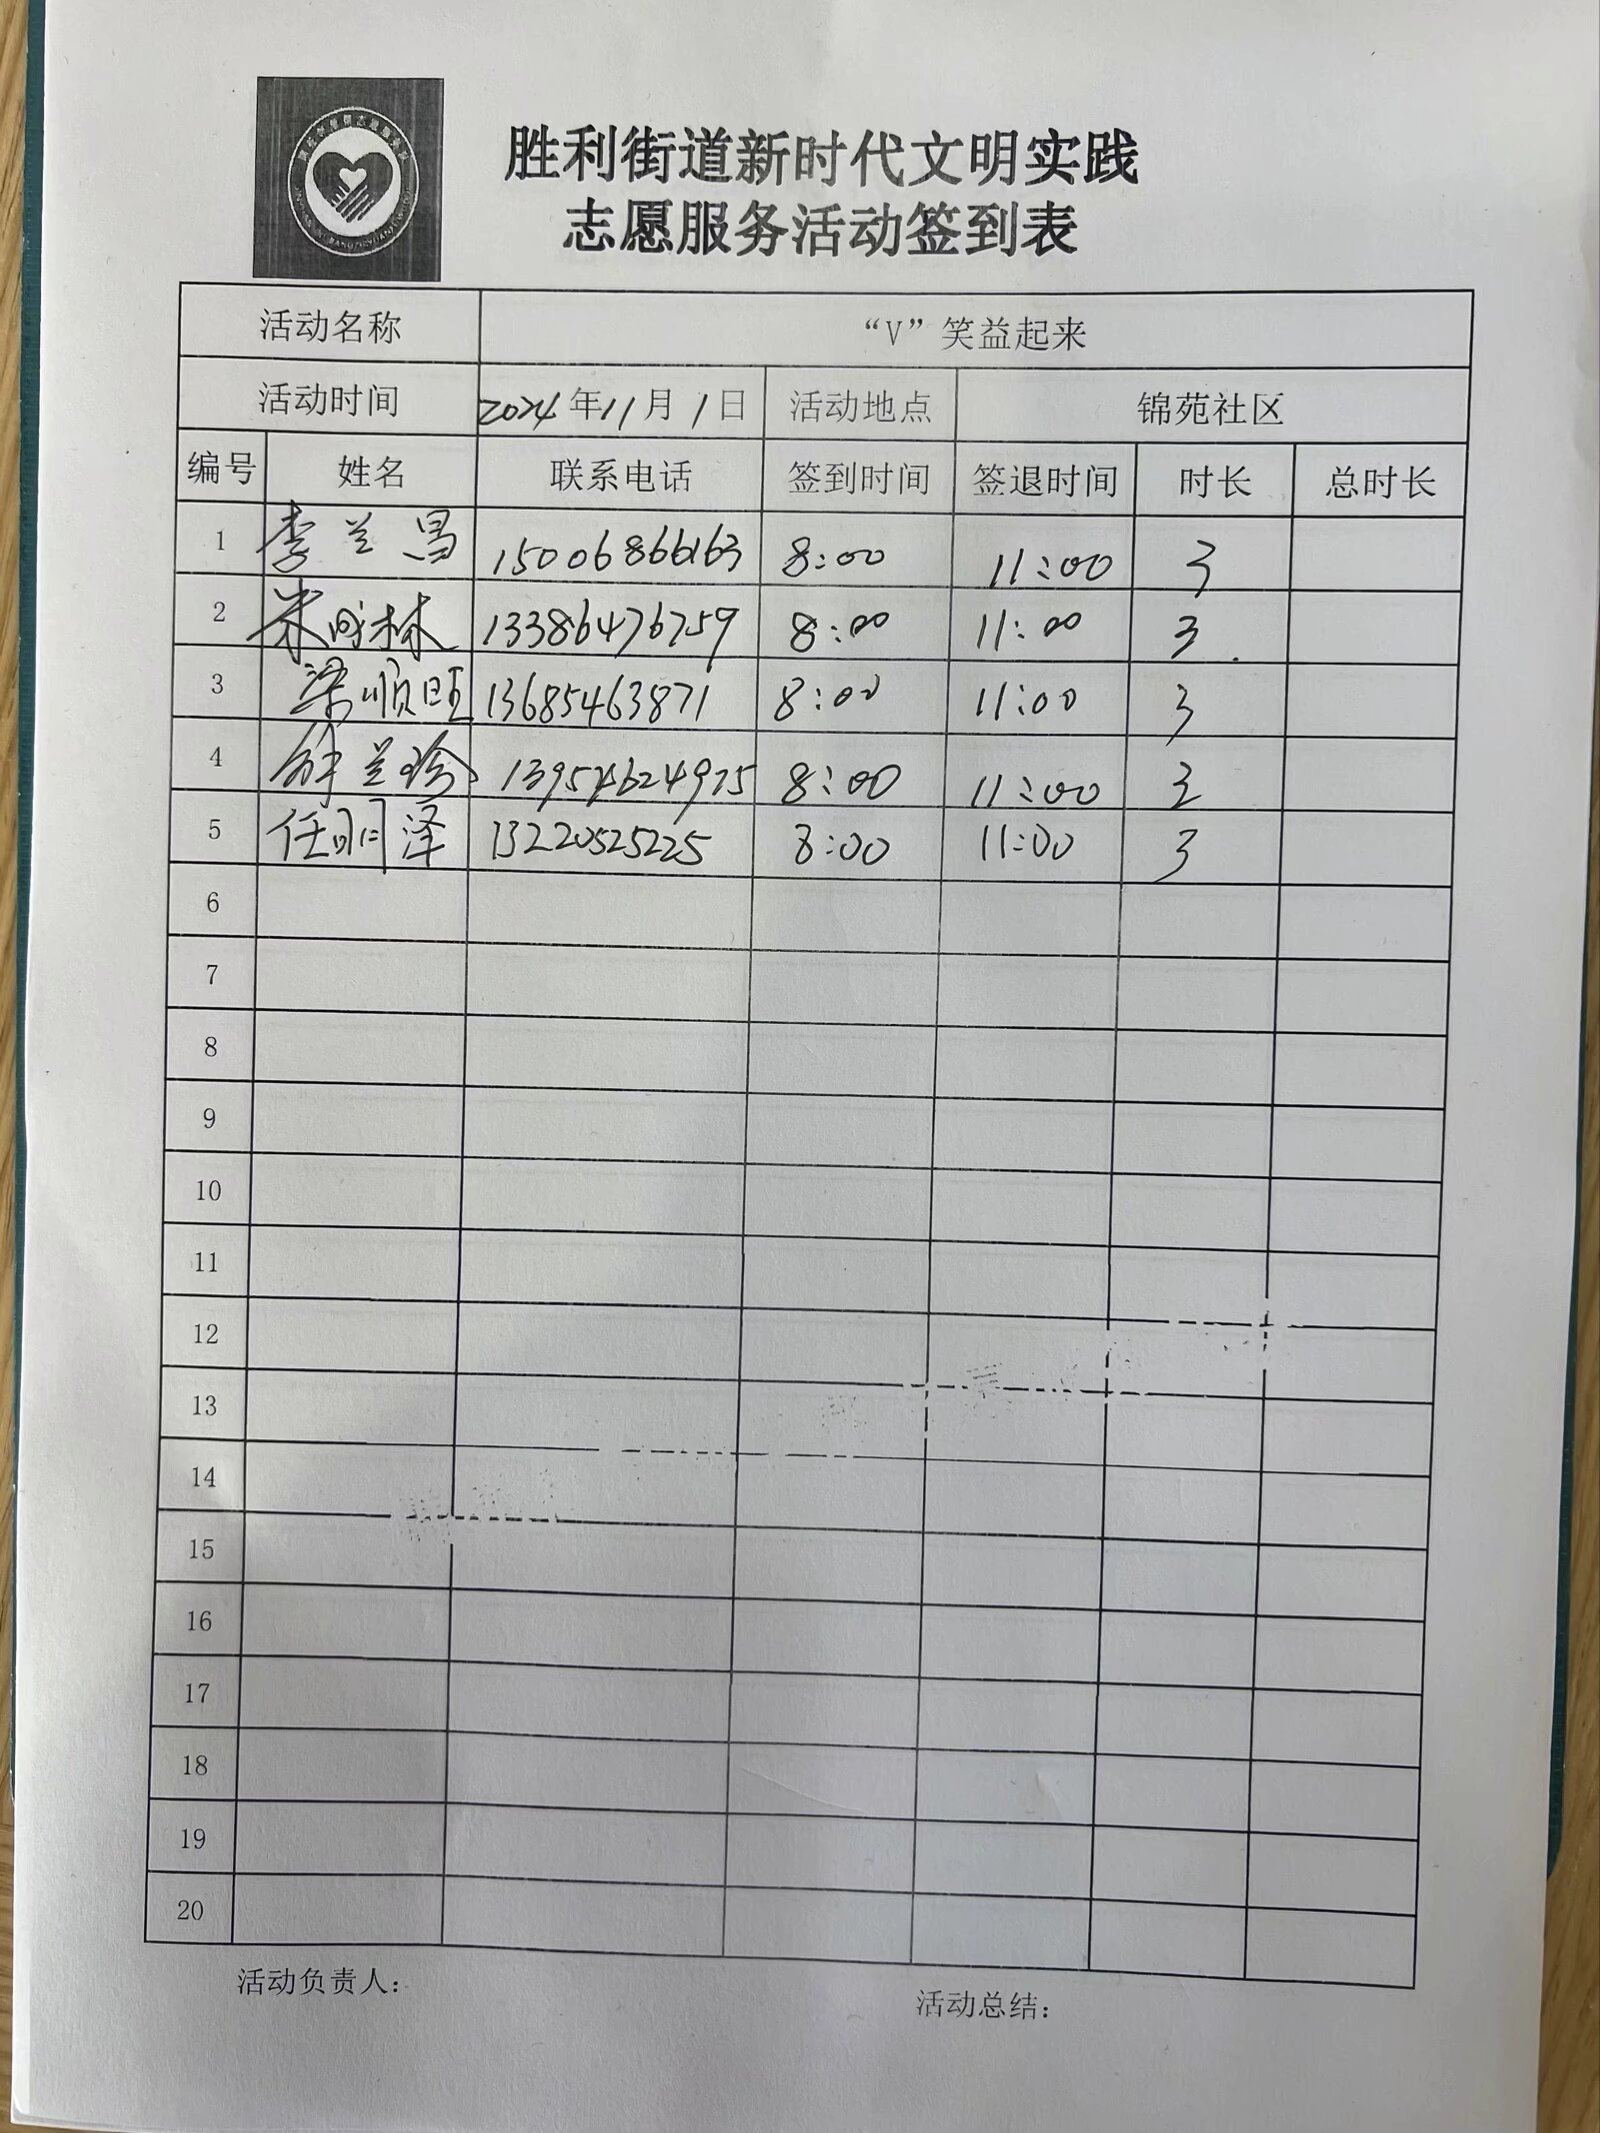 胜利街道新时代文明实践
志愿服务活动签到表
活动名称 “V”笑益起来
活动时间 2024年11月1日 活动地点 锦苑社区
编号 姓名 联系电话 签到时间 签退时间 时长 总时长
1 李兰昌 15006866163 8:00 11:00 3
2 13386476759 8:00 11:00 3
3 梁顺旺 13685463871 8:00 11:00 3
4 兰珍 8:00 11:00 3
5 任明泽 13220525225 8:00 11:00 3
6
7
8
9
10
11
12
13
14
15
16
17
18
19
20
活动负责人： 活动总结：